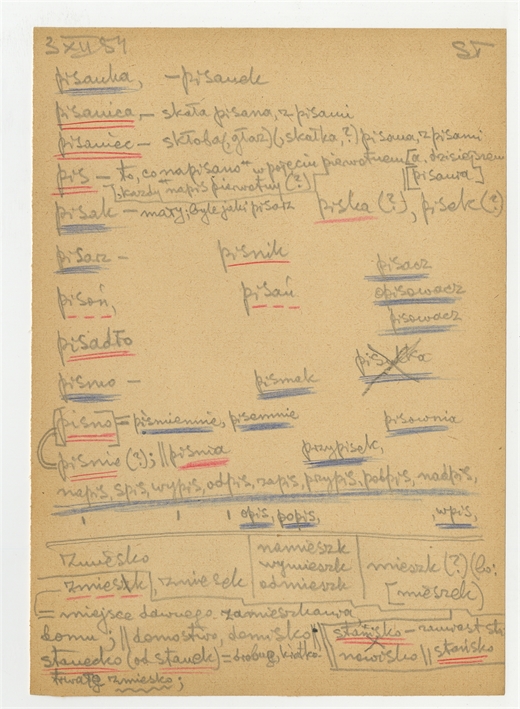 3 XII 51
pisanka, – pisanek
pisanica – skała pisana, z pisami
pisaniec – (głaz) (, skałka, ?) pisana, z pisami
pis – to, co napisano" w pojęciu pierwotnem [a, dzisiejszem
; każdy napis pierwotny (?) [pisania]
pisak – mały; byle jaki pisarz piska (?), pisek (?)
pisarz – pisnik pisacz
pisoń, pisań opisowacz
pisowacz
pisadło
pismo – pismak
[pisno] = piśmiennie, pisemnie pisownia
pisnie (?); || pisnia przypisek,
napis, spis, wypis, odpis, zapis, przypis, podpis, nadpis,
opis, popis, wpis,
zmiesko namieszk mieszk (?) (bo:
wymieszk
zmieszk, zmiesek odmieszk [mieszek)
= miejsce dawnego zamieszkania
domu; || domostwo, domisko" || stanisko – zamiast
stanecko (od stanek) = drobny, krótko nowisko || stańsko
trwałe zmiesko;